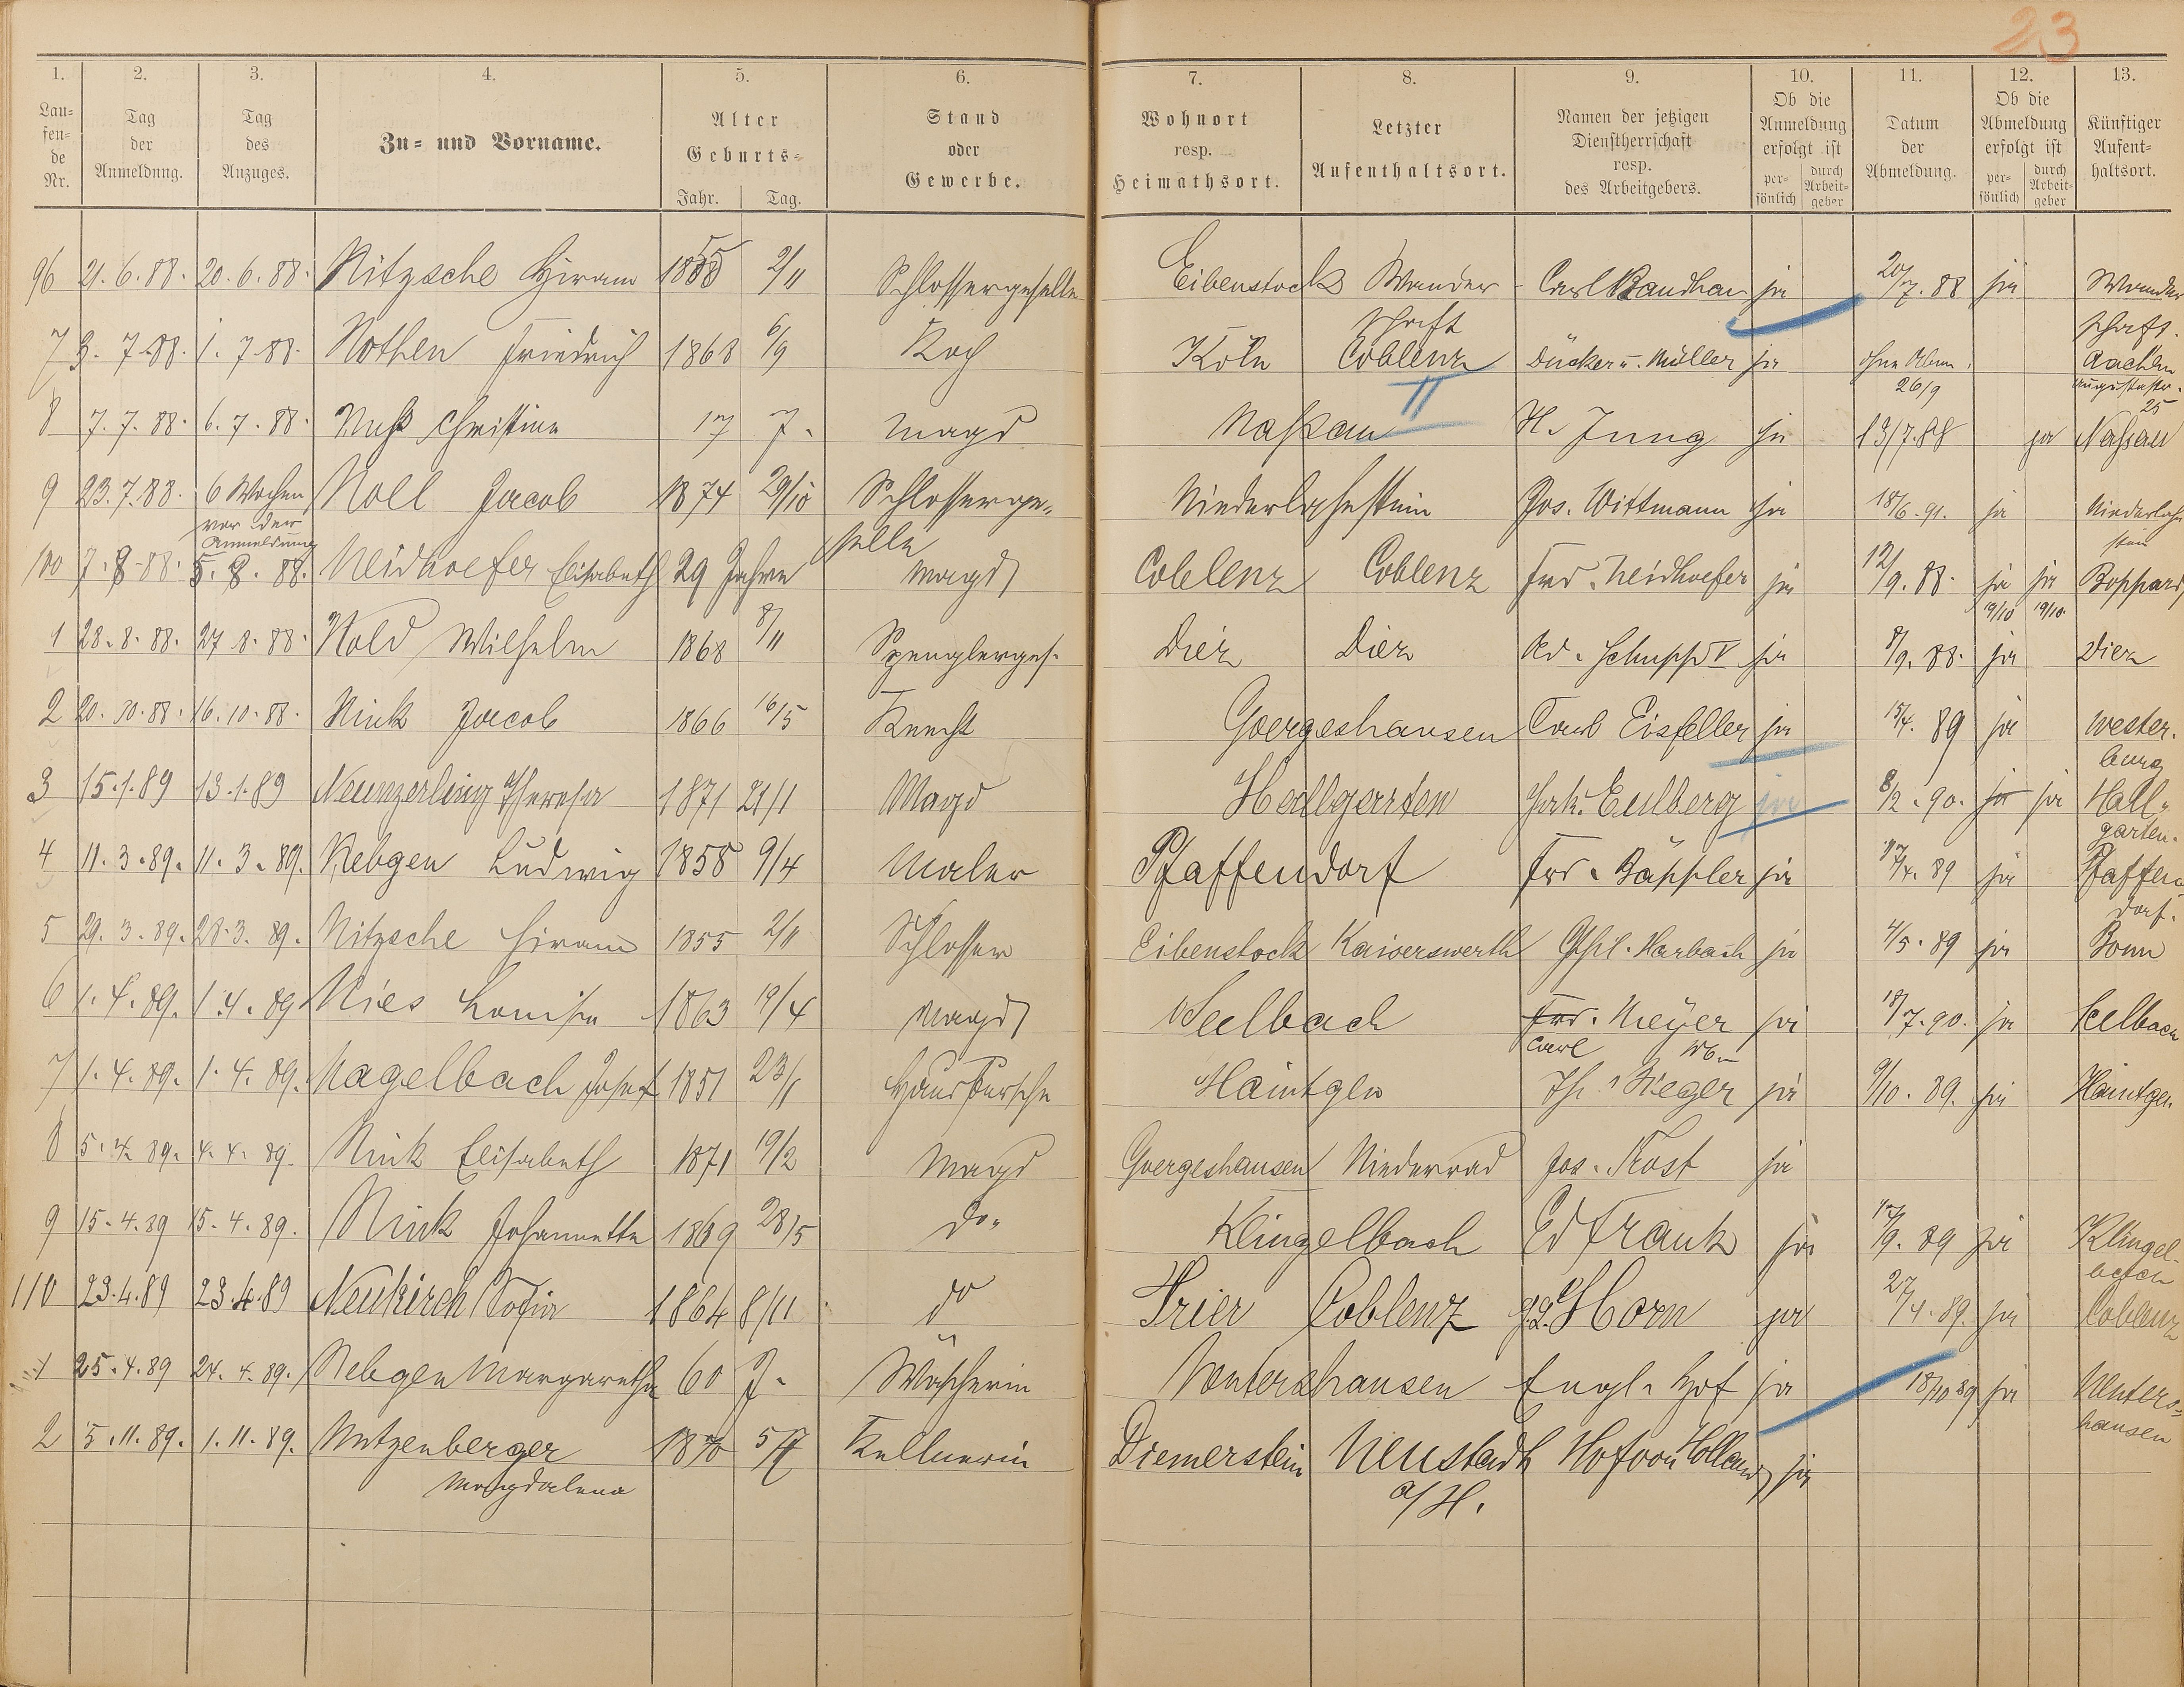 23
1. 2. 3. 4. 5. 6. 7. 8. 9. 10. 11. 12. 13.
Lau-
fen-
de
Nr.
Tag
der
Anmeldung.
Tag
des
Anzuges.
Zu- und Vorname.
Alter
Geburts-
Jahr. Tag.
Stand
oder
Gewerbe.
Wohnort
resp.
Heimathsort.
Letzter
Aufenthaltsort.
Namen der jetzigen
Dienstherrschaft
resp.
des Arbeitgebers.
Ob die
Anmeldung
erfolgt ist
per-
sönlich
durch
Arbeit-
geber
Datum
der
Abmeldung.
Ob die
Abmeldung
erfolgt ist
per-
sönlich
durch
Arbeit-
geber
Künftiger
Aufent-
haltsort.
96 21.6.88. 20.6.88. Nitzsche Hiram 1855 2/11 Schlossergeselle Eibenstock Wander- Carl ja 20/7.88 ja Wander
schaft schaft.
7 3.7.88. 1.7.88. Nothen Friedrich 1868 6/9 Koch Köln Coblenz Dücker u. Müller ja ohne Abm. Aachen
II 26/9 Augustastr.
25
8 7.7.88. 6.7.88. Nuß Christine 17 J. Magd Naßau H. Jung ja 13/7.88 ja Naßau
9 23.7.88. 6 Wochen Noll Jacob 1874 29/10 Schlosserge- Niederlahnstein Jos. Wittmann ja 18/6.91. ja Niederlahn
vor der selle stein
Anmeldung
100 7.8.88. 5.8.88. Neidhoefer Elisabeth 29 Jahre Magd Coblenz Coblenz Frd. Neidhoefer ja 12/9.88. ja ja Boppard
19/10 19/10
1 28.8.88. 27.8.88. Nold Wilhelm 1868 8/11 Spenglerges. Diez Diez Ad. Schupp V ja 8/9.88. ja Diez
2 20.10.88. 16.10.88. Nink Jacob 1866 16/5 Knecht Goergeshausen Carl Eisfeller ja 15/4.89 ja Wester-
burg
3 15.1.89 13.1.89 Neunzerling Theresa 1871 21/1 Magd Hallgarten Jak. Eulberg ja 8/2.90. ja ja Hall-
garten.
4 11.3.89. 11.3.89. Nebgen Ludwig 1858 9/4 Maler Pfaffendorf Frd. Bäppler ja 17/4.89 ja Pfaffen-
dorf.
5 29.3.89. 28.3.89. Nitzsche Hiram 1855 2/11 Schlosser Eibenstock Kaiserswerth Harbach ja 4/5.89 ja Bonn
6 1.4.89. 1.4.89 Nies Louise 1863 19/4 Magd Seelbach Frd. Meyer ja 18/7.90. ja Seelbach
Carl Wb.
7 1.4.89. 1.4.89. Nagelbach Josef 1851 23/1 Hausbursche Haintgen Jh. Rieger ja 9/10.89. ja Haintgen
8 5.4.89. 4.4.89. Nink Elisabeth 1871 19/2 Magd Goergeshausen Niederrad Jos. Trost ja
9 15.4.89 15.4.89. Nink Johannette 1869 28/5 do. Klingelbach Ed Frank ja 17/9.89 ja Klingel-
bach
110 23.4.89 23.4.89 Neukirch Sofia 1864 8/11 do Trier Coblenz Horn ja 27/4.89. ja Coblenz
1 25.4.89 24.4.89. Nebgen Margarethe 60 J. Wäscherin Untershausen Engl. Hof ja 18/10 89 ja Unters-
hausen
2 5.11.89. 1.11.89. Nutzenberger 1870 Kellnerin Diemerstein Neustadt Hof von Holland ja
Magdalena a/H.